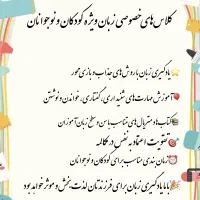 کلاس‌های خصوصی زبان ویژه کودکان و نوجوانان
یادگیری زبان با روش‌های جذاب و بازی‌محور
آموزش مهارت‌های شنیداری، گفتاری، خواندن و نوشتن
کتاب‌ها و متریال‌های متناسب با سن و سطح زبان‌آموزان
تقویت اعتماد به نفس در مکالمه
زمان‌بندی مناسب برای کودکان و نوجوانان
با ما یادگیری زبان برای فرزندتان لذت‌بخش و موثر خواهد بود